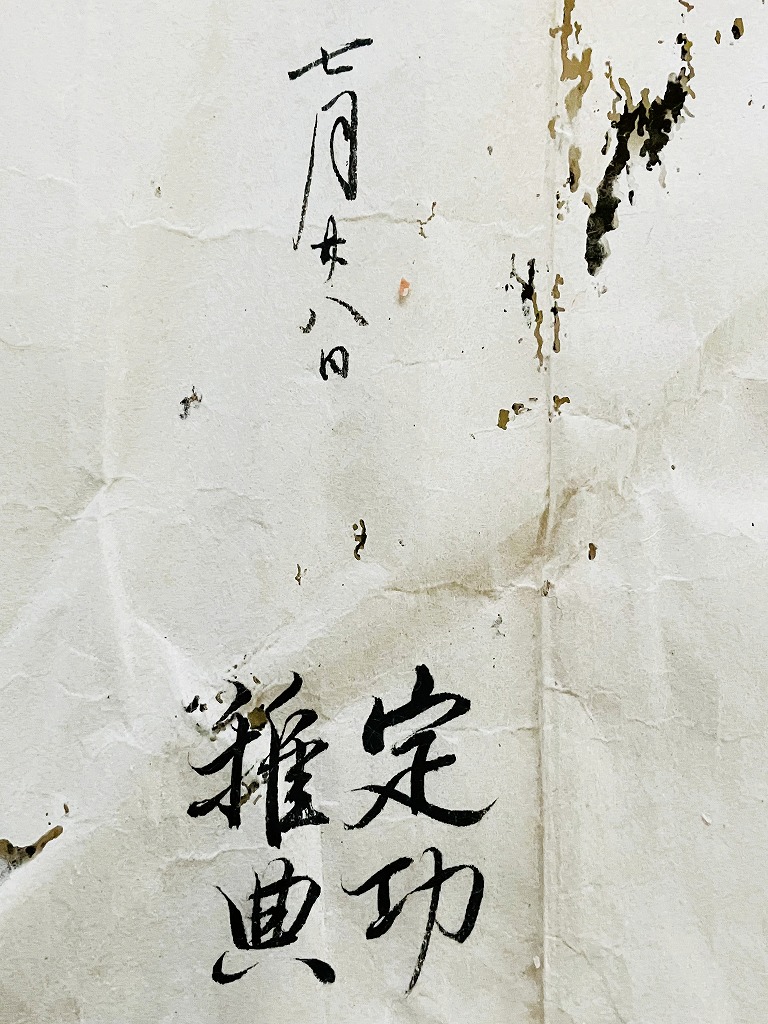 七月廿八日
定功
雅典